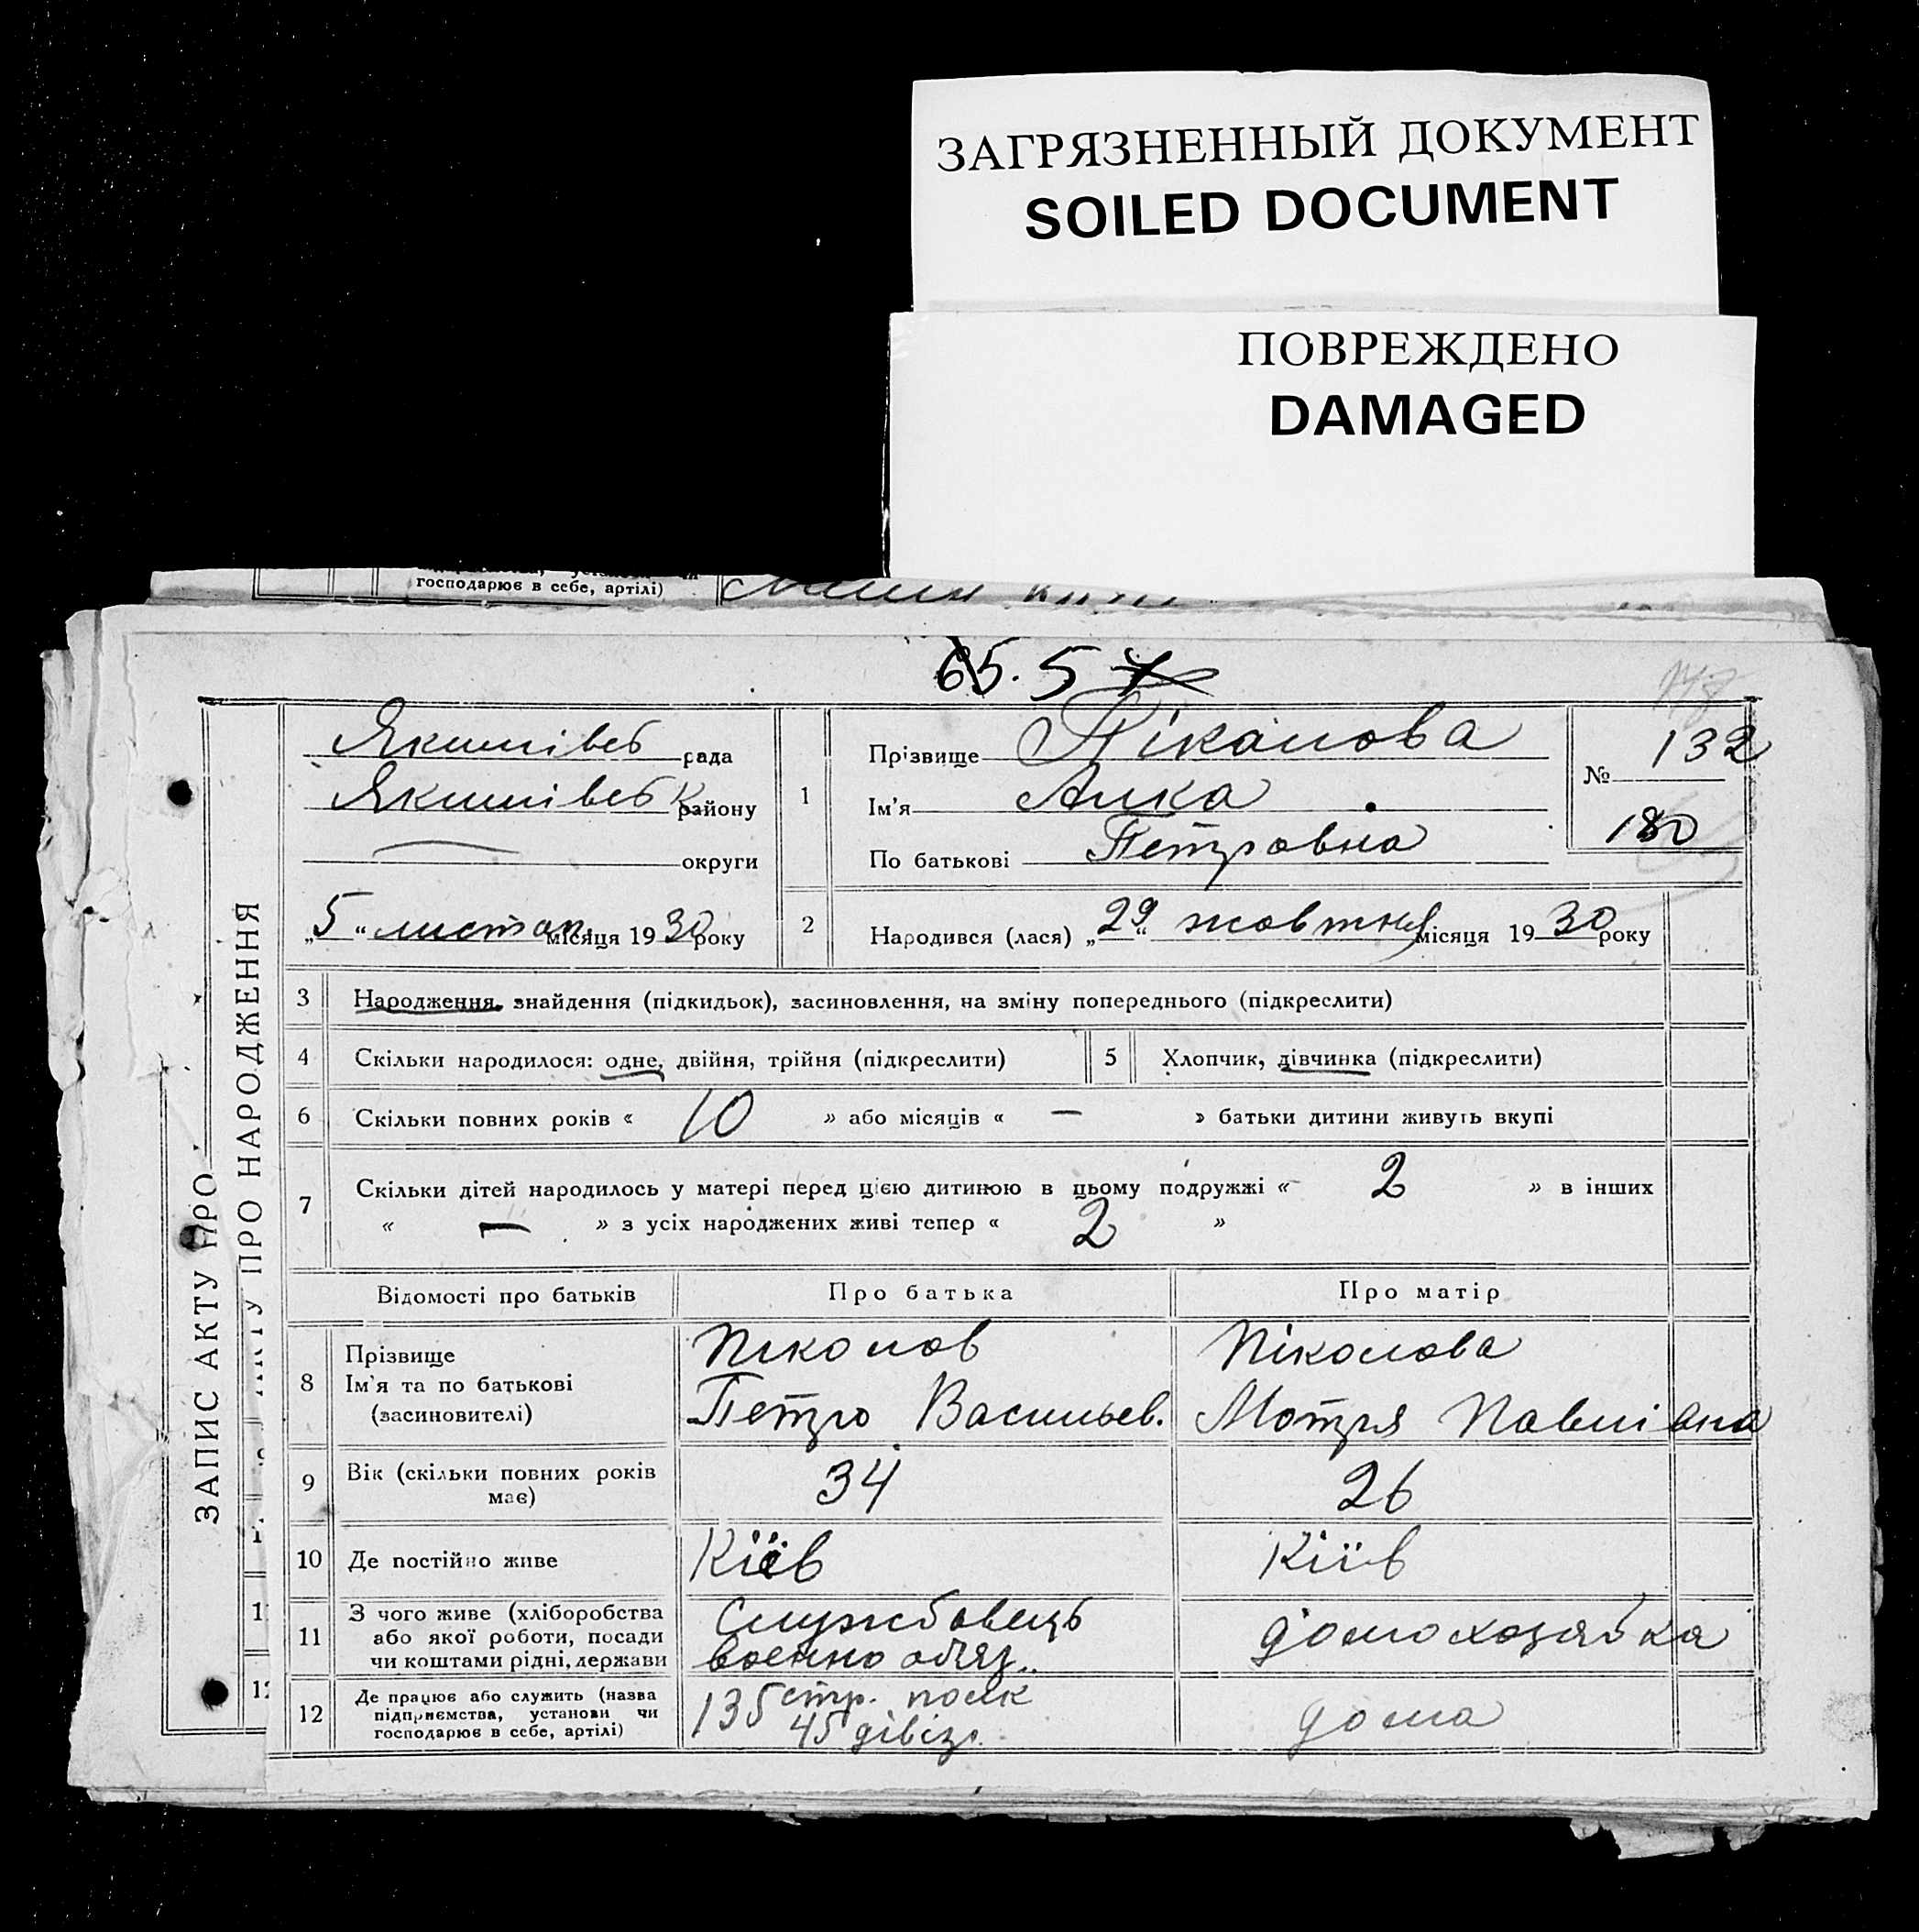 ЗАГРЯЗНЕННЫЙ ДОКУМЕНТ
SOILED DOCUMENT
ПОВРЕЖДЕНО
DAMAGED
господарює в себе, артілі)
65. 5
ЗАПИС АКТУ ПРО
ПРО НАРОДЖЕННЯ
рада
району
округи
„5“ листоп. місяця 1930 року
1
Прізвище Піколова
Ім'я
По батькові Петровна
№ 132
180
2
Народився (лася) „29“ жовтня місяця 1930 року
3 Народження, знайдення (підкидьок), засиновлення, на зміну попереднього (підкреслити)
4 Скільки народилося: одне, двійня, трійня (підкреслити)
5 Хлопчик, дівчинка (підкреслити)
6 Скільки повних років « 10 » або місяців « — » батьки дитини живуть вкупі
7 Скільки дітей народилось у матері перед цією дитиною в цьому подружжі « 2 » в інших
« — » з усіх народжених живі тепер « 2 »
Відомості про батьків
Про батька
Про матір
8
Прізвище
Ім'я та по батькові
(засиновителі)
Піколов
Петро Васильев.
Піколова
Мотря Павлівна
9
Вік (скільки повних років
має)
34
26
10 Де постійно живе
Київ
Кіїв
11
З чого живе (хліборобства
або якої роботи, посади
чи коштами рідні, держави
Службовець
военно обяз.
домохозяйка
12
Де працює або служить (назва
підприємства, установи чи
господарює в себе, артілі)
135 стр. полк
45 дівіз.
дома